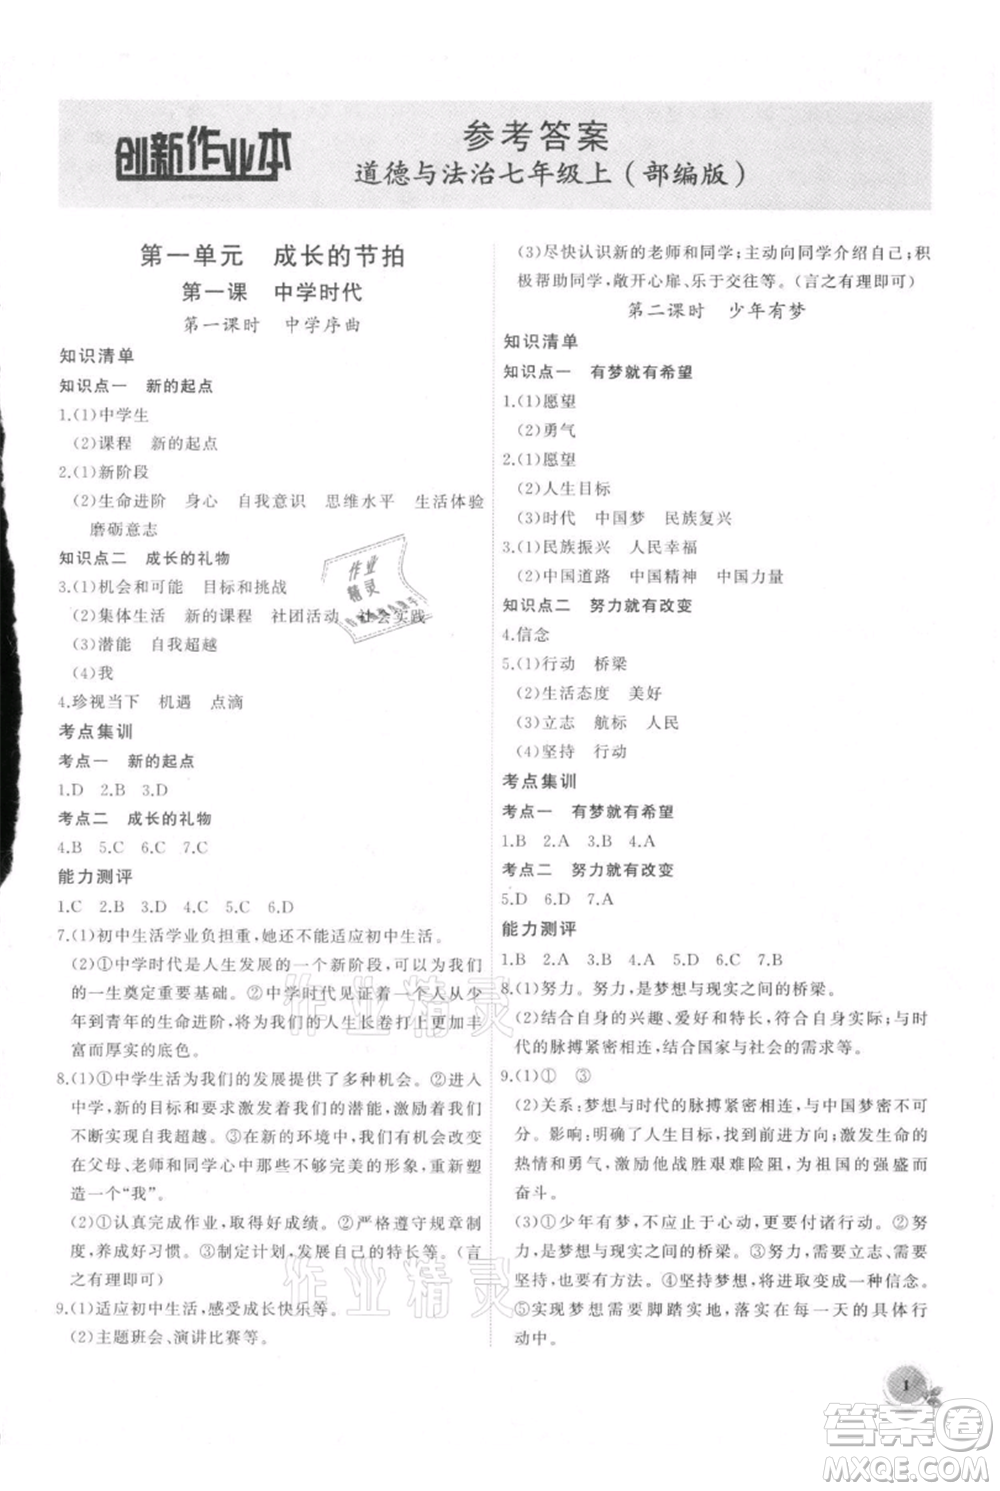 创新作业本
参考答案
道德与法治七年级上（部编版）
第一单元 成长的节拍
第一课 中学时代
第一课时 中学序曲
知识清单
知识点一 新的起点
1.(1)中学生
(2)课程 新的起点
2.(1)新阶段
(2)生命进阶 身心 自我意识 思维水平 生活体验
磨砺意志
知识点二 成长的礼物
3.(1)机会和可能 目标和挑战
(2)集体生活 新的课程 社团活动 社会实践
(3)潜能 自我超越
(4)我
4.珍视当下 机遇 点滴
考点集训
考点一 新的起点
1.D 2.B 3.D
考点二 成长的礼物
4.B 5.C 6.C 7.C
能力测评
1.C 2.B 3.D 4.C 5.C 6.D
7.(1)初中生活学业负担重,她还不能适应初中生活。
(2)①中学时代是人生发展的一个新阶段,可以为我们
的一生奠定重要基础。②中学时代见证着一个人从少
年到青年的生命进阶,将为我们的人生长卷打上更加丰
富而厚实的底色。
8.(1)①中学生活为我们的发展提供了多种机会。②进入
中学,新的目标和要求激发着我们的潜能,激励着我们
不断实现自我超越。③在新的环境中,我们有机会改变
在父母、老师和同学心中那些不太满意的形象,重新塑
造一个“我”。
(2)①认真完成作业,取得好成绩。②严格遵守规章制
度,养成好习惯。③制定计划,发展自己的特长等。(言
之有理即可)
9.(1)适应初中生活,感受成长快乐等。
(2)主题班会、演讲比赛等。
(3)尽快认识新的老师和同学;主动向同学介绍自己;积
极帮助同学,敞开心扉、乐于交往等。(言之有理即可)
第二课时 少年有梦
知识清单
知识点一 有梦就有希望
1.(1)愿望
(2)勇气
2.(1)愿望
(2)人生目标
(3)时代 中国梦 民族复兴
3.(1)民族振兴 人民幸福
(2)中国道路 中国精神 中国力量
知识点二 努力就有改变
4.信念
5.(1)行动 桥梁
(2)生活态度 美好
(3)立志 航标 人民
(4)坚持 行动
考点集训
考点一 有梦就有希望
1.B 2.A 3.B 4.A
考点二 努力就有改变
5.D 6.D 7.A
能力测评
1.B 2.B 3.A 4.A 5.D 6.C 7.B
8.(1)努力。努力,是梦想与现实之间的桥梁。
(2)结合自身的兴趣、爱好和特长,符合自身实际;与时
代的脉搏紧密相连,结合国家与社会的需求等。
9.(1)① ③
(2)关系:梦想与时代的脉搏紧密相连,与中国梦密不可
分。影响:明确了人生目标,找到前进方向;激发生命的
热情和勇气,激励他战胜艰难险阻,为祖国的强盛而
奋斗。
(3)①少年有梦,不应止于心动,更要付诸行动。②努
力,是梦想与现实之间的桥梁。③努力,需要立志、需要
坚持,也需要方法。④坚持梦想,将进取变成一种信念。
⑤实现梦想需要脚踏实地,落实在每一天的具体行
动中。
1
作业精灵
作业精灵
作业
精灵
答案卷
MXQE.COM